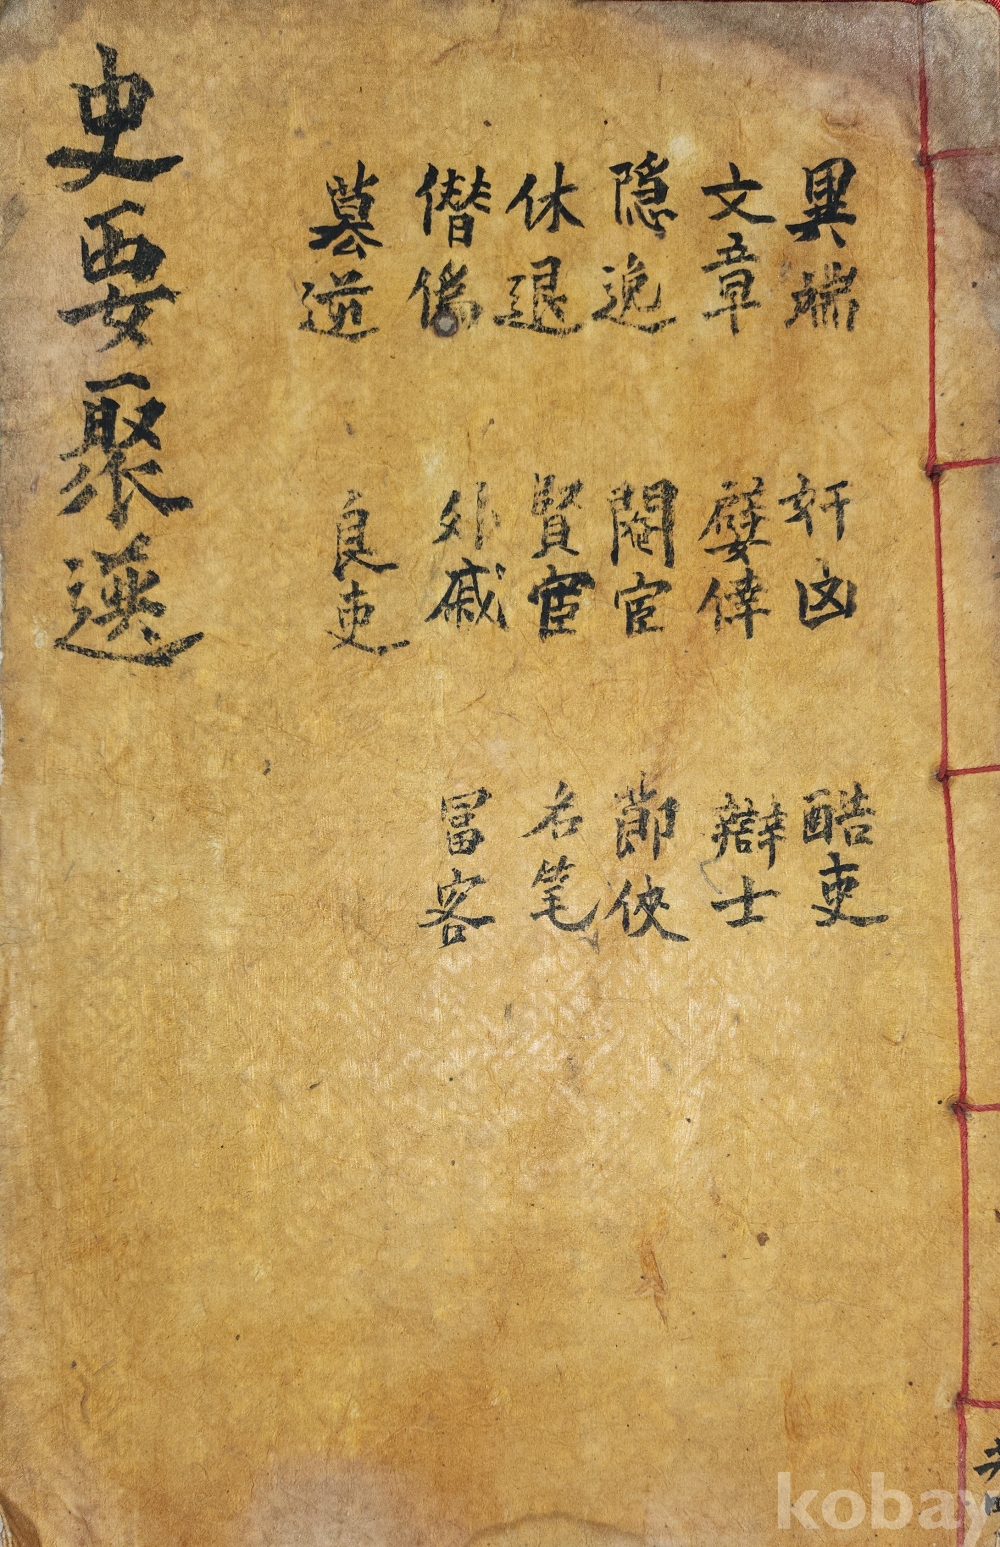 史要聚選
異端
文章
隐逸
休退
僣僞
簒逆
奸凶
嬖倖
閹宦
賢宦
外戚
良吏
酷吏
辯士
節俠
名笔
冨客
共四
kobay